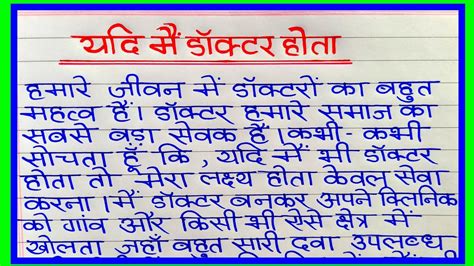 यदि मैं डॉक्टर होता
हमारे जीवन में डॉक्टरों का बहुत
महत्व हैं। डॉक्टर हमारे समाज का
सबसे बड़ा सेवक हैं। कभी-कभी
सोचता हूँ कि, यदि मैं भी डॉक्टर
होता तो मेरा लक्ष्य होता केवल सेवा
करना। मैं डॉक्टर बनकर अपने क्लिनिक
को गांव और किसी भी ऐसे क्षेत्र में
खोलता जहाँ बहुत सारी दवा उपलब्ध